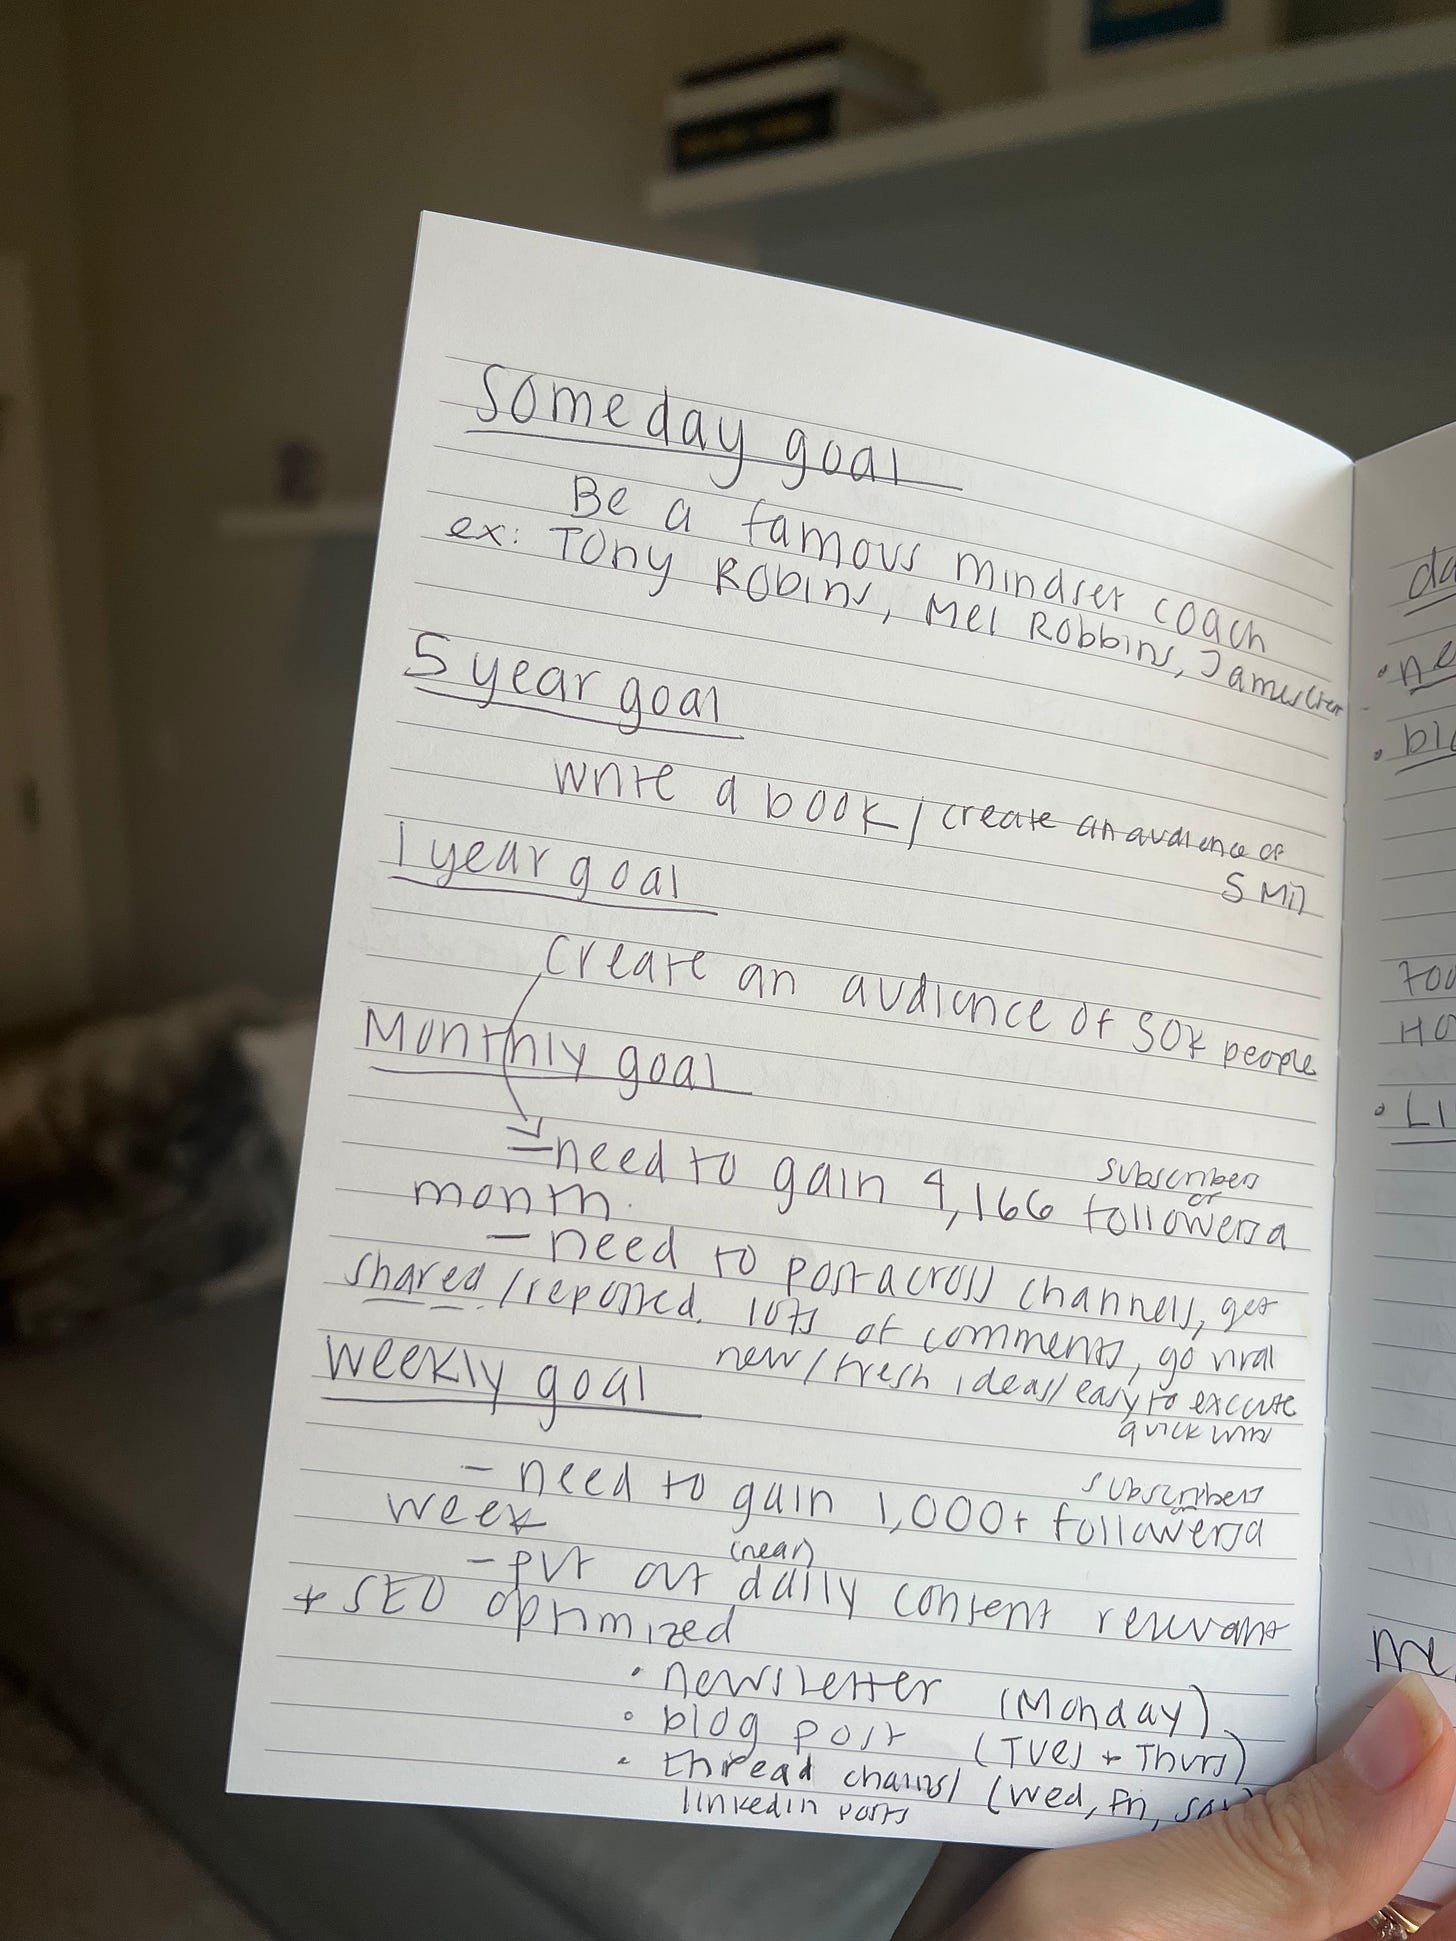 someday goal
Be a famous mindset coach
ex: Tony Robins, Mel Robbins, James Clear
5 year goal
write a book / create an audience of
5 Mil
1 year goal
create an audience of 50k people
Monthly goal
need to gain 4,166 subscribers or followers a
month.
- need to post across channels, get
shared / reposted. lots of comments, go viral
new / fresh ideas / easy to execute
quick wins
weekly goal
- need to gain 1,000+ subscribers or followers a
week
- put out (near) daily content relevant
+ SEO optimized
• newsletter (Monday)
• blog post (Tues + Thurs)
• thread chains / (Wed, Fri, Sat)
linkedin posts
da
• ne
• blo
HO
• LI
me